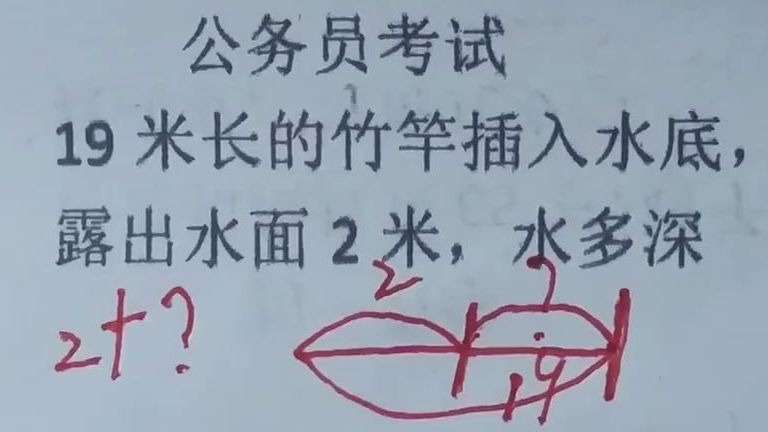 公务员考试
19米长的竹竿插入水底，
露出水面2米，水多深
2 ?
2+? 19